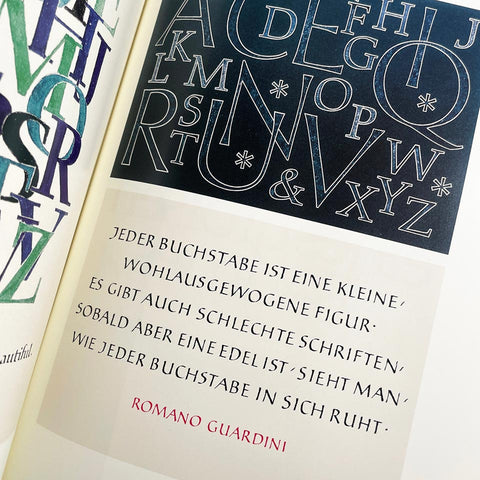 A C D E F G H I J
K L M N O P Q
R S T U V W
& X Y Z
JEDER BUCHSTABE IST EINE KLEINE,
WOHLAUSGEWOGENE FIGUR.
ES GIBT AUCH SCHLECHTE SCHRIFTEN,
SOBALD ABER EINE EDEL IST, SIEHT MAN,
WIE JEDER BUCHSTABE IN SICH RUHT.
ROMANO GUARDINI